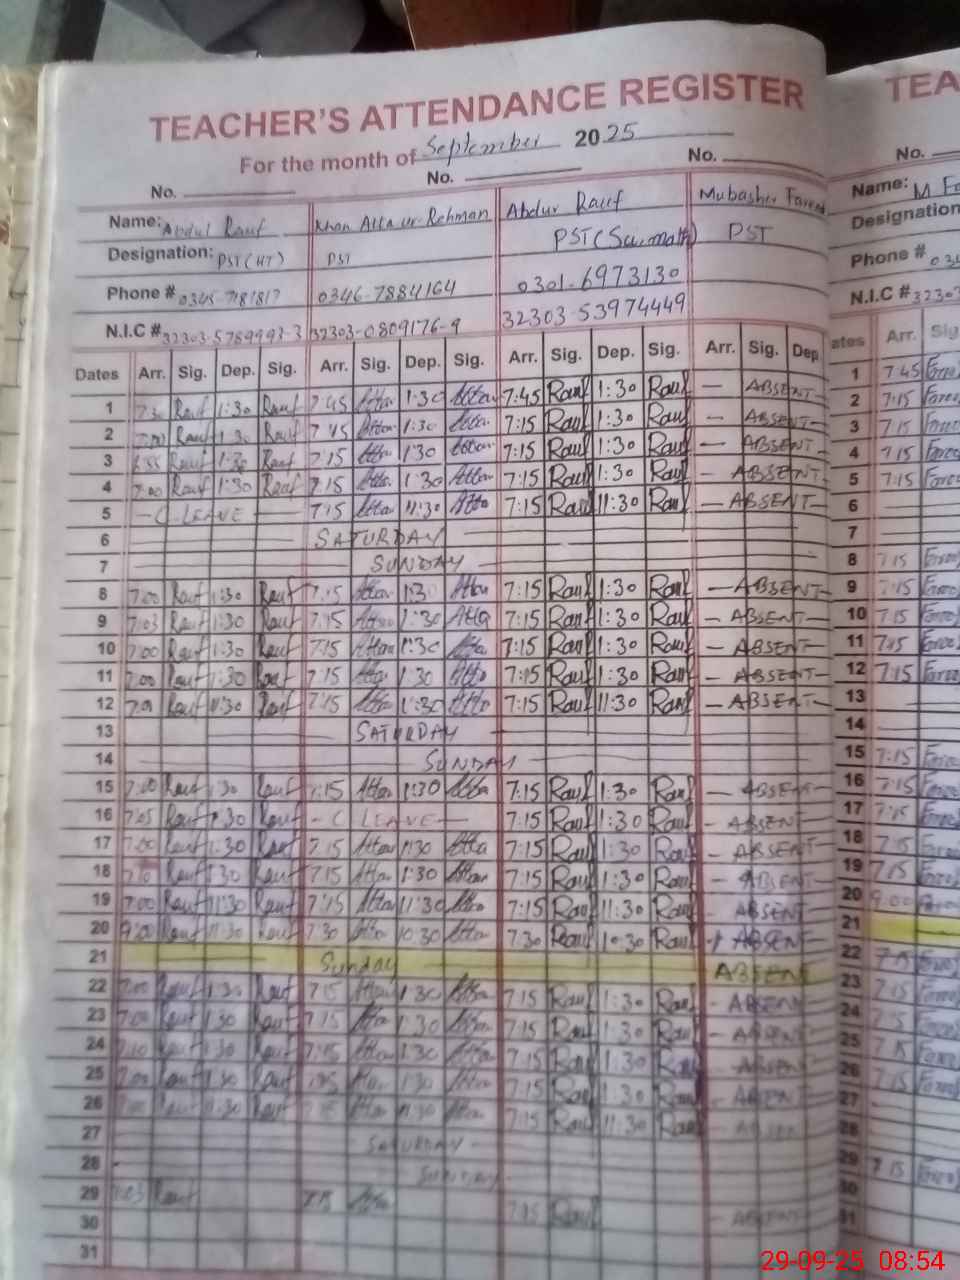 TEACHER'S ATTENDANCE REGISTER TEA
For the month of September 2025
No. No. No. No.
Name: Abdul Rauf Khan Atta ur Rehman Abdur Rauf Mubasher Fareed Name: M Fa
Designation: PST (HT) PST PST (Sci, math) PST Designation
Phone # 0345-7181817 0346-7884164 0301-6973130 Phone # 034
N.I.C # 32303-5789993-3 32303-0809176-9 32303-53974449 N.I.C # 32303
Dates Arr. Sig. Dep. Sig. Arr. Sig. Dep. Sig. Arr. Sig. Dep. Sig. Arr. Sig. Dep ates Arr. Sig
1 7:30 Rauf 1:30 Rauf 7:45 Atta 1:30 Atta 7:45 Rauf 1:30 Rauf — ABSENT— 1 7 45
2 7:00 Rauf 1:30 Rauf 7:45 Atta 1:30 Atta 7:15 Rauf 1:30 Rauf — ABSENT— 2 7:15
3 Rauf 1:30 Rauf 7:15 Atta 1:30 Atta 7:15 Rauf 1:30 Rauf — ABSENT— 3 7:15
4 7:00 Rauf 1:30 Rauf 7:15 Atta 1:30 Atta 7:15 Rauf 1:30 Rauf — ABSENT— 4 7:15
5 — C. LEAVE — 7:15 Atta 11:30 Atta 7:15 Rauf 11:30 Rauf — ABSENT— 5 7:15
6 SATURDAY 6
7 SUNDAY 7
8 7:00 Rauf 1:30 Rauf 7:15 Atta 1:30 Atta 7:15 Rauf 1:30 Rauf — ABSENT— 8 7:15
9 7:03 Rauf 1:30 Rauf 7:15 Atta 1:30 Atta 7:15 Rauf 1:30 Rauf — ABSENT— 9 7:15
10 7:00 Rauf 1:30 Rauf 7:15 Atta 1:30 Atta 7:15 Rauf 1:30 Rauf — ABSENT— 10 7:15
11 7:00 Rauf 1:30 Rauf 7:15 Atta 1:30 Atta 7:15 Rauf 1:30 Rauf — ABSENT— 11
12 Rauf 11:30 Rauf 7:15 Atta 11:30 Atta 7:15 Rauf 11:30 Rauf — ABSENT— 12 7:15
13 SATURDAY 13
14 SUNDAY 14
15 7:00 Rauf 1:30 Rauf 7:15 Atta 1:30 Atta 7:15 Rauf 1:30 Rauf — ABSENT— 15 7:15
16 7:05 Rauf 1:30 Rauf — C LEAVE — 7:15 Rauf 1:30 Rauf — ABSENT— 16 7:15
17 7:00 Rauf 1:30 Rauf 7:15 Atta 1:30 Atta 7:15 Rauf 1:30 Rauf — ABSENT— 17 7:15
18 Rauf 1:30 Rauf 7:15 Atta 1:30 Atta 7:15 Rauf 1:30 Rauf — ABSENT— 18 7:15
19 7:00 Rauf 11:30 Rauf 7:15 Atta 11:30 Atta 7:15 Rauf 11:30 Rauf — ABSENT— 19 7:15
20 9:00 Rauf 11:30 Rauf 7:30 Atta 10:30 Atta 7:30 Rauf 10:30 Rauf ABSENT— 20 9:00
21 Sunday ABSENT 21
22 7:00 Rauf 1:30 Rauf 7:15 Atta 1:30 Atta 7:15 Rauf 1:30 Rauf — ABSENT— 22 7:15
23 7:00 Rauf 1:30 Rauf 7:15 Atta 1:30 Atta 7:15 Rauf 1:30 Rauf — ABSENT— 23 7:15
24 Rauf 1:30 Rauf 7:15 Atta 1:30 Atta 7:15 Rauf 1:30 Rauf — ABSENT— 24 7:15
25 7:00 Rauf 1:30 Rauf Atta 1:30 Atta 7:15 Rauf 1:30 Rauf — ABSENT— 25 7:15
26 Rauf 11:30 Rauf Atta 11:30 Atta 7:15 Rauf 11:30 Rauf — ABSENT 26 7:15
27 SATURDAY 27
28 SUNDAY 28
29 7:03 Rauf 7:15 Atta 7:15 Rauf — ABSENT— 29 7:15
30 30
31 31
29-09-25 08:54